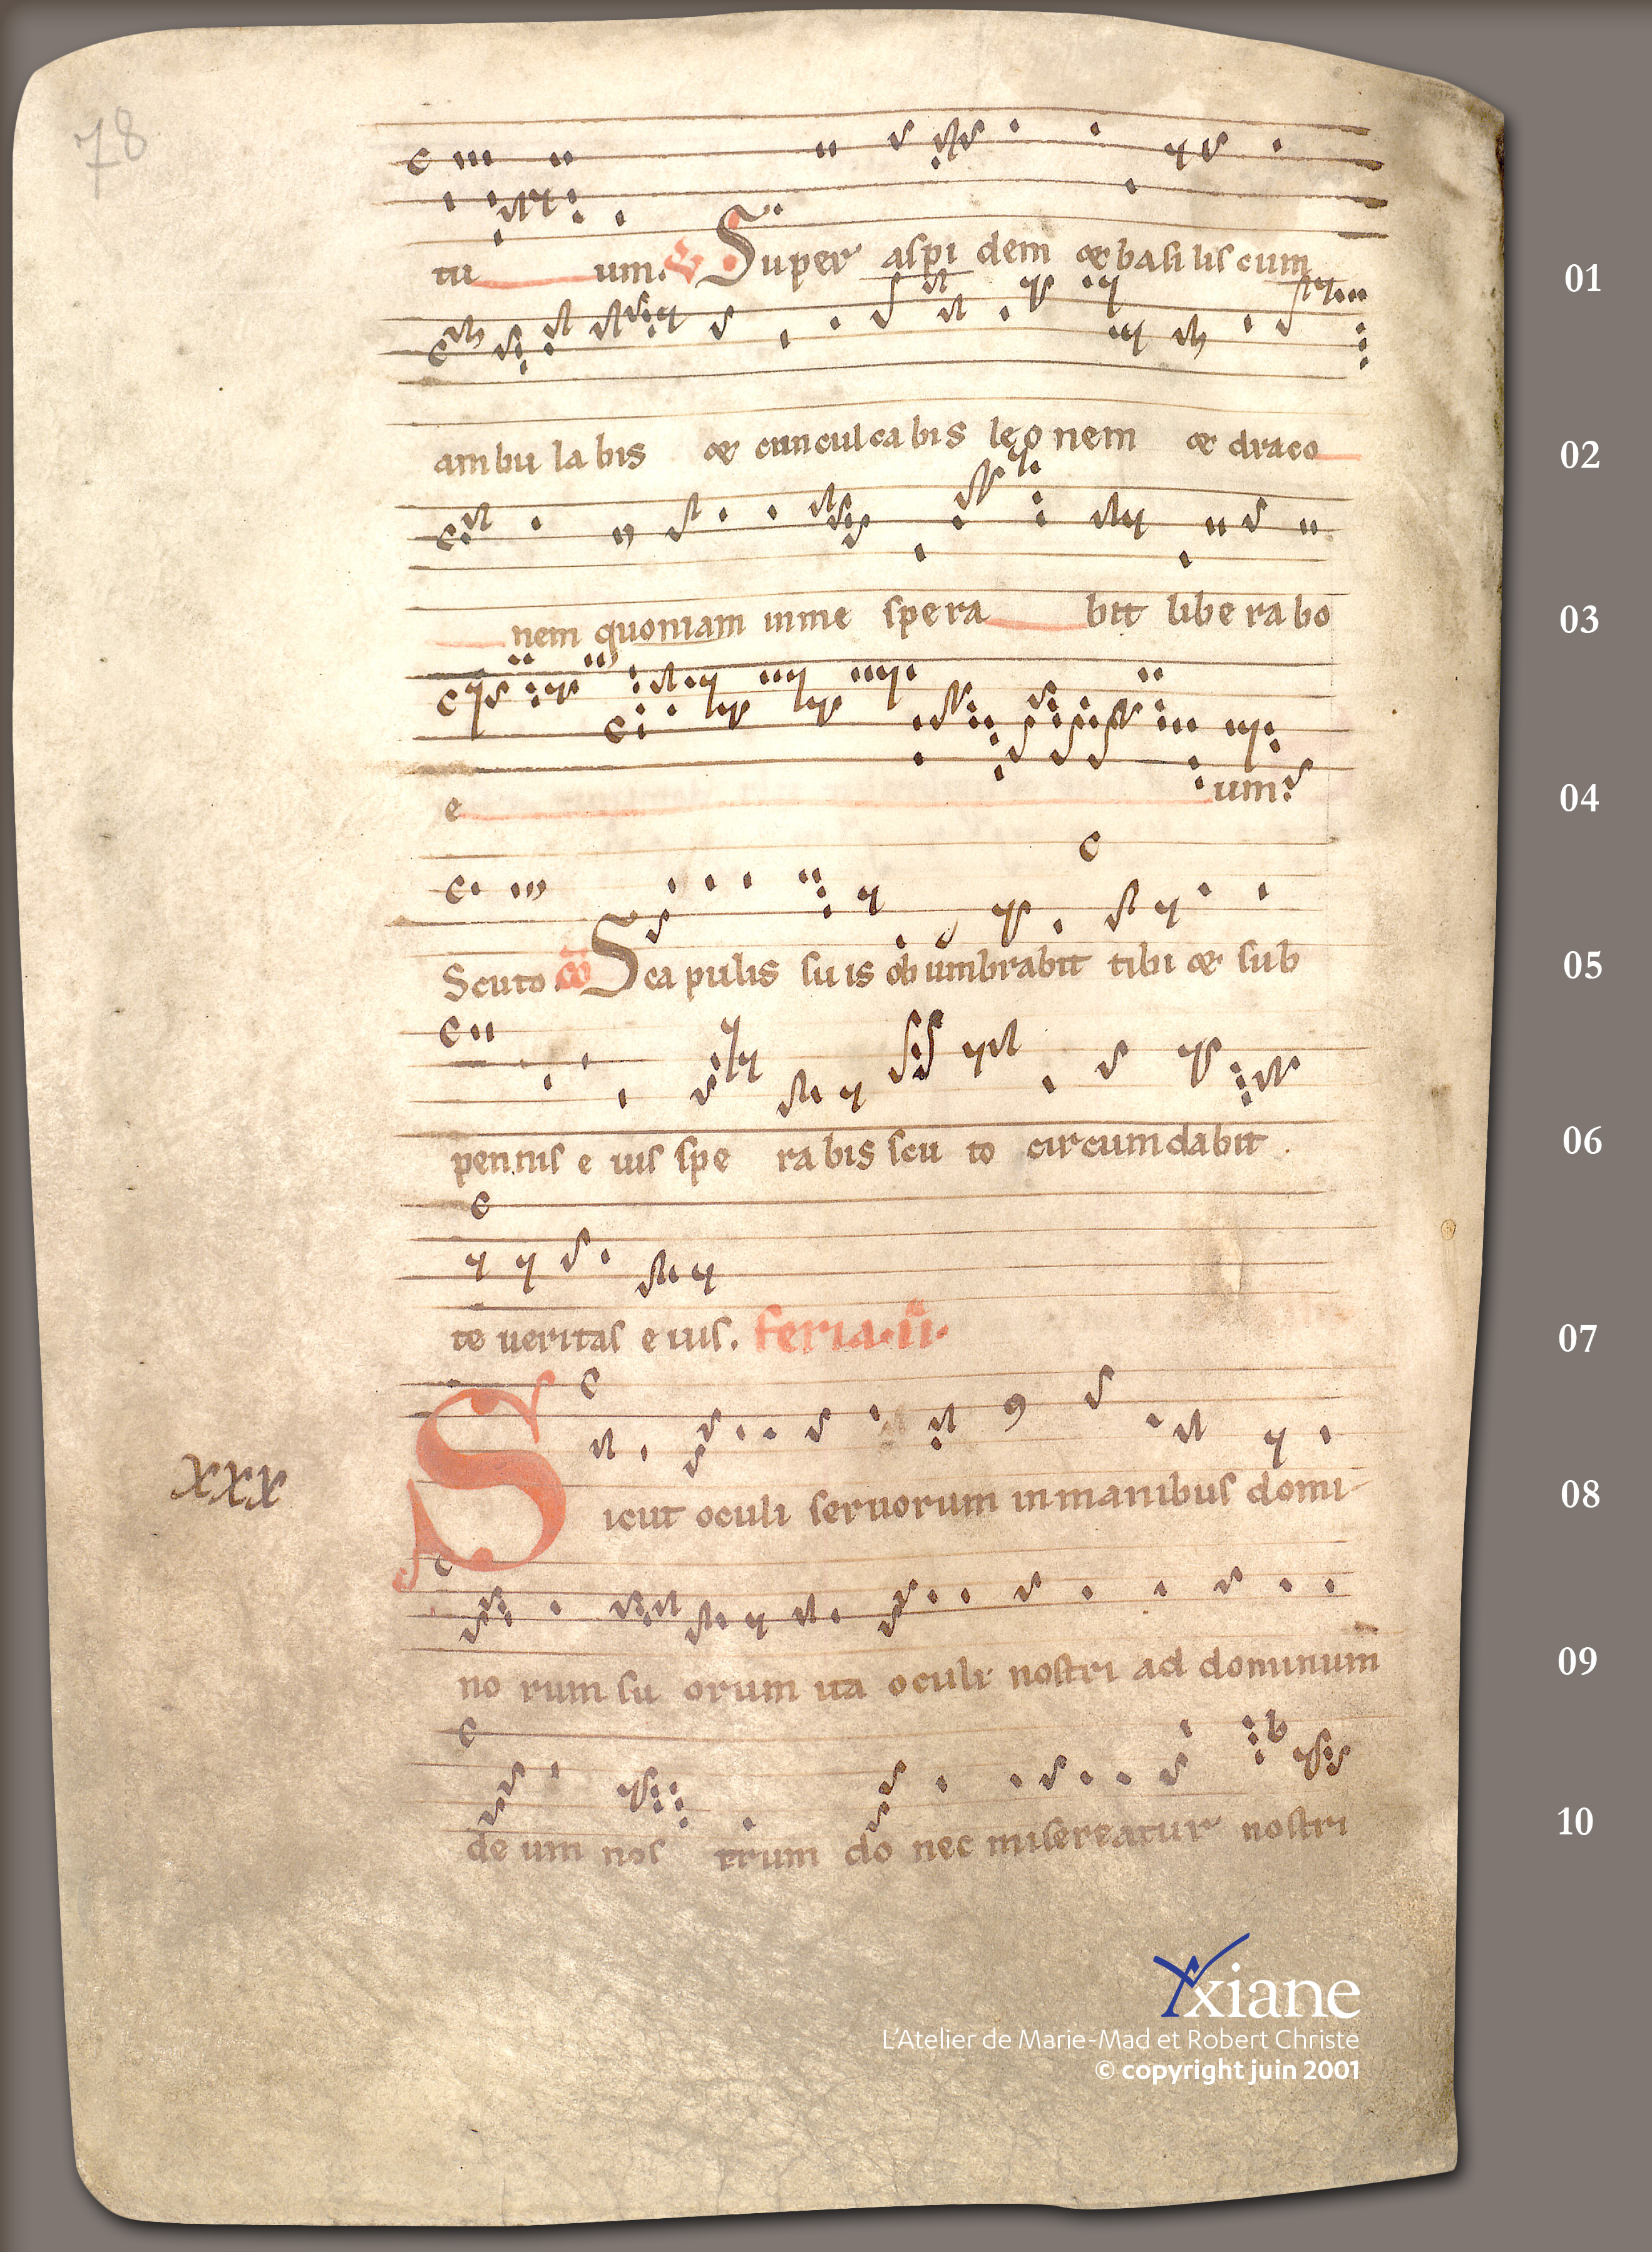 78
tu um. V Super aspi dem & basi lis cum 01
am bu la bis & con cul ca bis leo nem & draco 02
nem quoniam in me spe ra bit libe ra bo 03
e um. 04
Scuto Co Sca pulis su is ob umbrabit tibi & sub 05
pen nis e ius spe ra bis scu to circumdabit 06
te veritas e ius. feria .ii. 07
xxx Sicut oculi seruorum in manibus domi- 08
no rum su orum ita oculi nostri ad dominum 09
de um nos trum do nec misereatur nostri 10
Yxiane
L'Atelier de Marie-Mad et Robert Christe
© copyright juin 2001